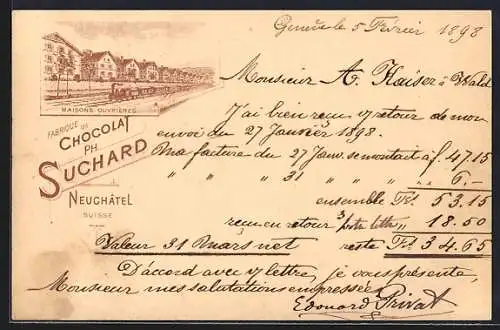 Genève le 5 Février 1898
MAISONS OUVRIÈRES
FABRIQUE DE
CHOCOLAT
PH.
SUCHARD
NEUCHÂTEL
SUISSE
Monsieur A. Kaiser à Wald
J'ai bien reçu en retour de mon
envoi du 27 Janvier 1898.
Ma facture du 27 Janv. se montait à f. 47.15
" " " 31 " " " " 6.-
ensemble Frs 53.15
reçu en retour s/ votre lettre " 18.50
Valeur 31 Mars net reste Frs 34.65
D'accord avec v/ lettre, je vous présente,
Monsieur mes salutations empressées
Edouard Privat